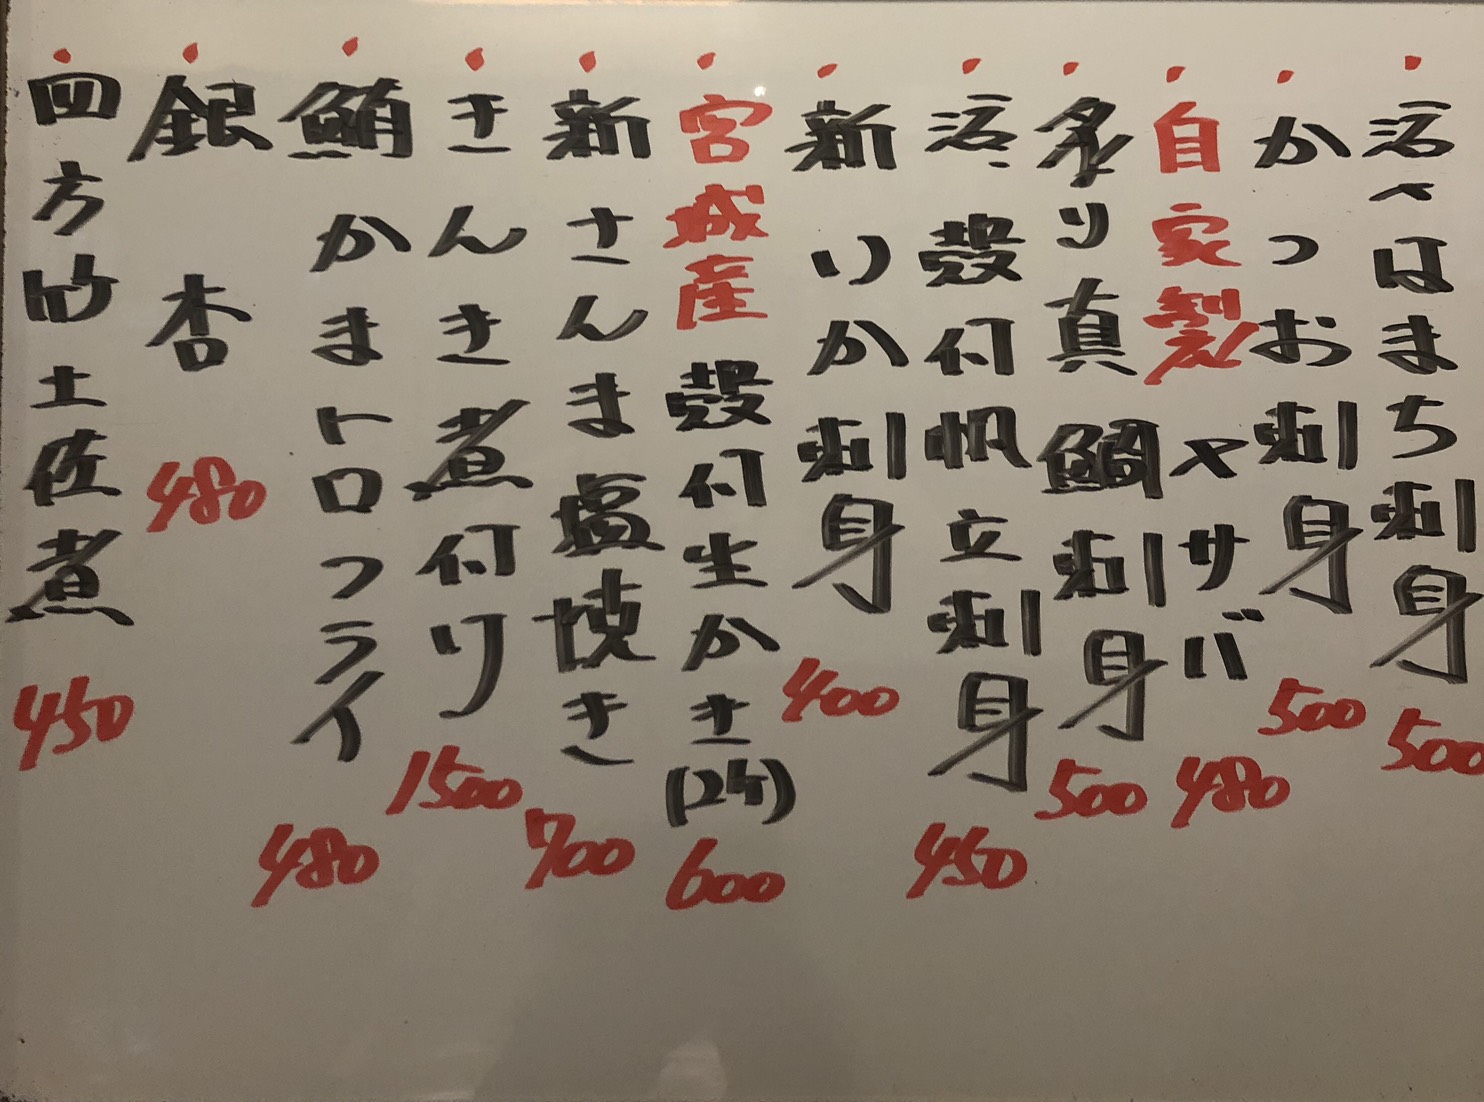 活〆はまち刺身 500
かつお刺身 500
自家製〆サバ 480
炙り真鯛刺身 500
活〆殻付帆立刺身 450
新いか刺身 400
宮城産殻付生かき(2ケ) 600
新さんま塩焼き 700
きんき煮付け 1500
鮪かまトロフライ 480
銀杏 480
四方竹土佐煮 450